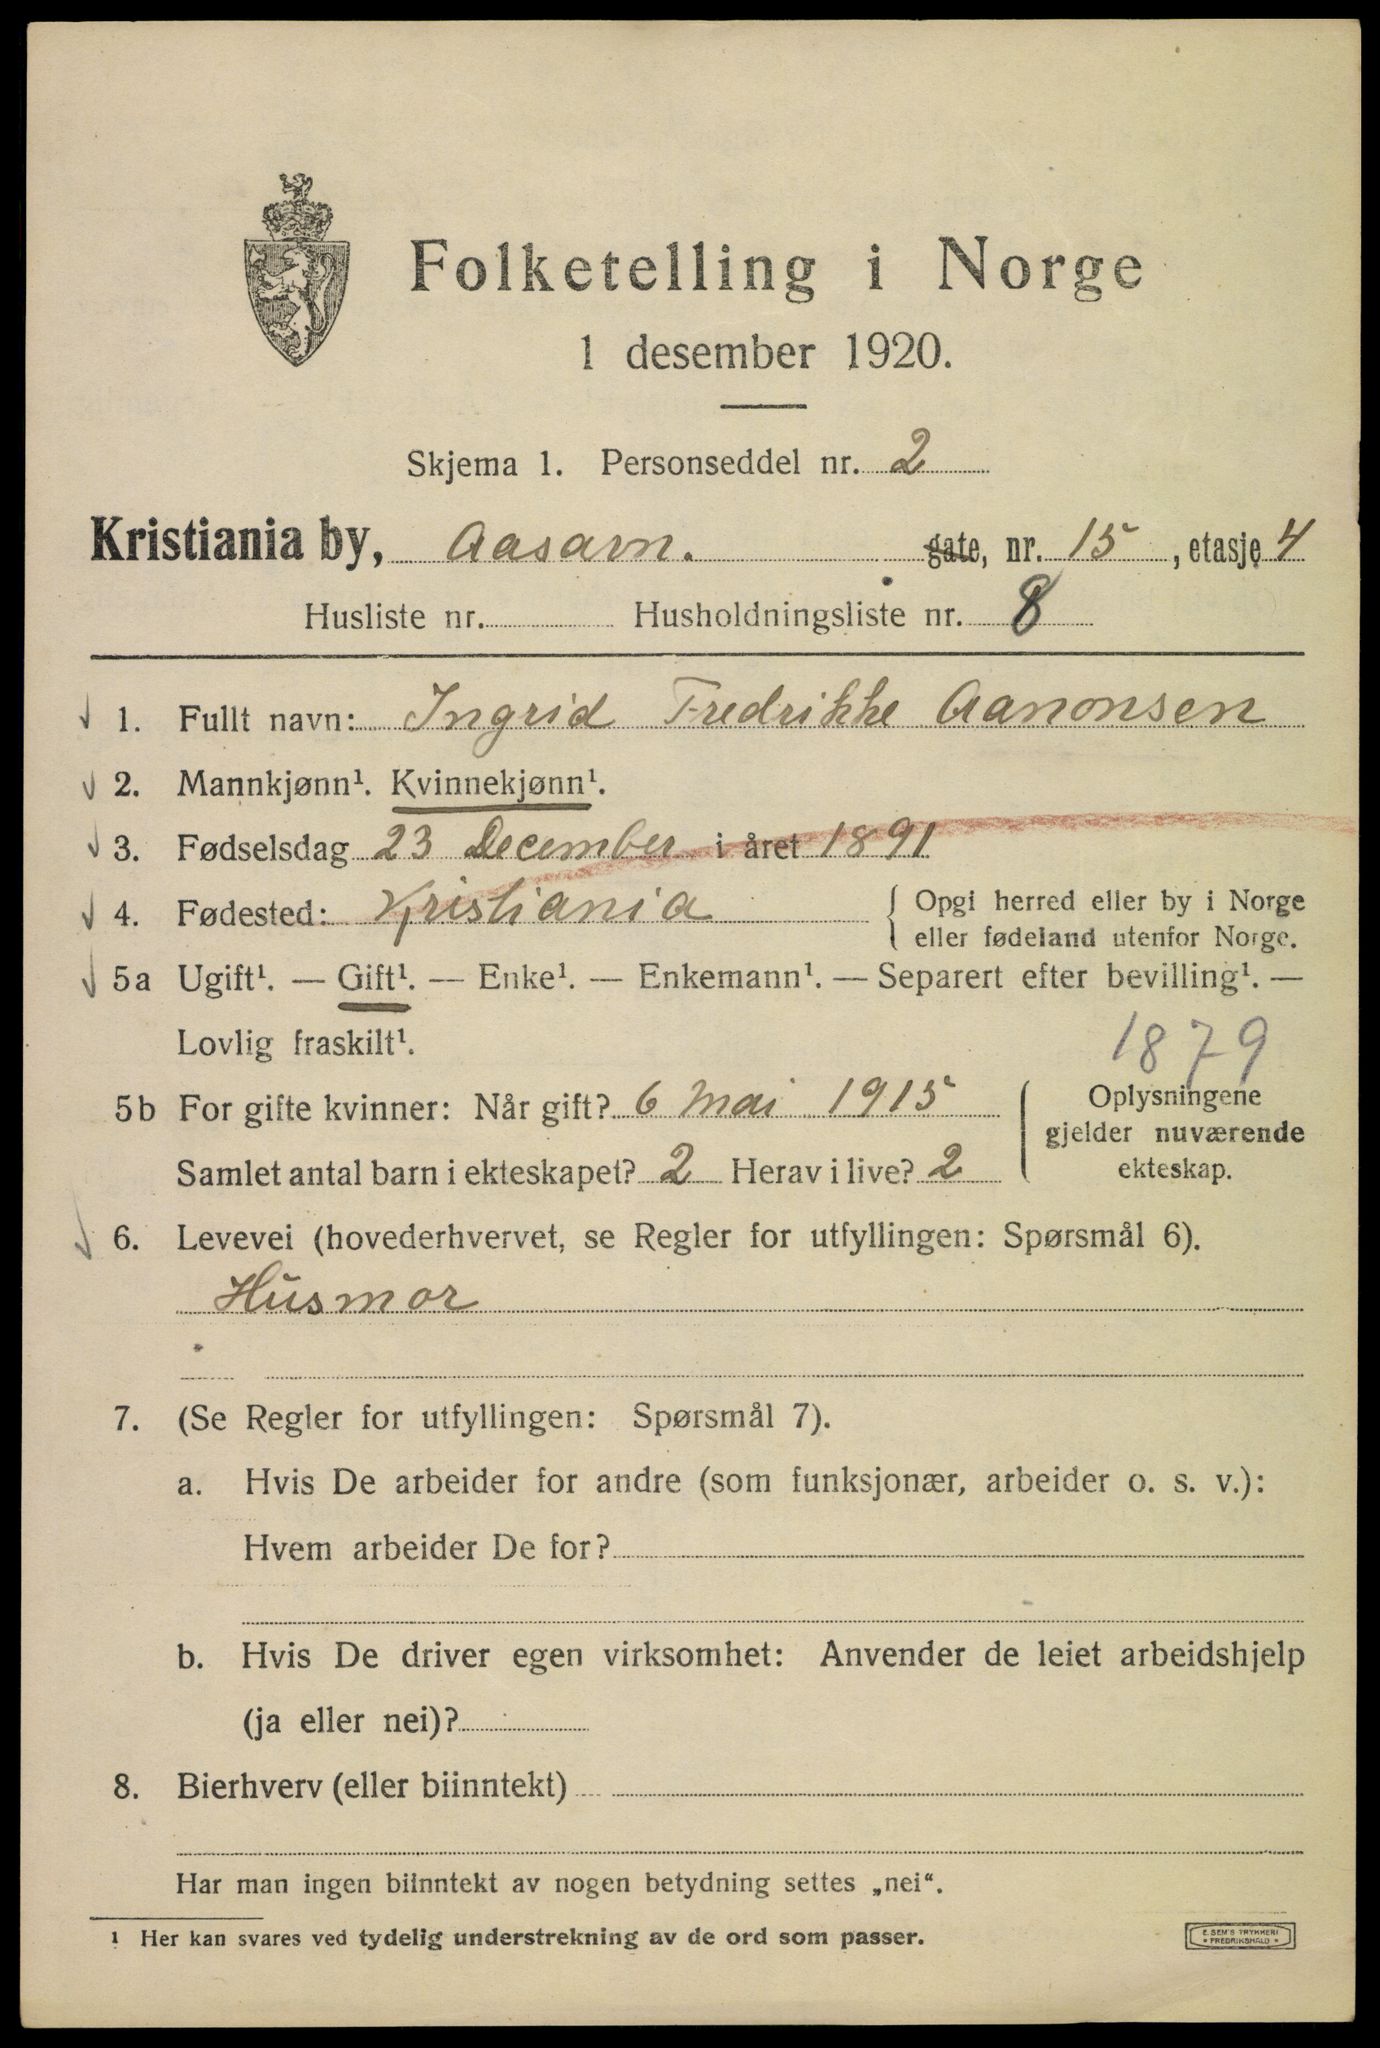 Folketelling i Norge
1 desember 1920.
Skjema 1. Personseddel nr. 2
Kristiania by, Aasavn. gate, nr. 15, etasje 4
Husliste nr. Husholdningsliste nr. 8
1. Fullt navn: Ingrid Fredrikke Aanonsen
2. Mannkjønn¹. Kvinnekjønn¹.
3. Fødselsdag 23 December i året 1891
4. Fødested: Kristiania { Opgi herred eller by i Norge
eller fødeland utenfor Norge.
5a Ugift¹. — Gift¹. — Enke¹. — Enkemann¹. — Separert efter bevilling¹. —
Lovlig fraskilt¹.
1879
5b For gifte kvinner: Når gift? 6 Mai 1915
Samlet antal barn i ekteskapet? 2 Herav i live? 2
Oplysningene
gjelder nuværende
ekteskap.
6. Levevei (hovederhvervet, se Regler for utfyllingen: Spørsmål 6).
Husmor
7. (Se Regler for utfyllingen: Spørsmål 7).
a. Hvis De arbeider for andre (som funksjonær, arbeider o. s. v.):
Hvem arbeider De for?
b. Hvis De driver egen virksomhet: Anvender de leiet arbeidshjelp
(ja eller nei)?
8. Bierhverv (eller biinntekt)
Har man ingen biinntekt av nogen betydning settes „nei“.
¹ Her kan svares ved tydelig understrekning av de ord som passer.
E. SEM'S TRYKKERI
FREDRIKSHALD